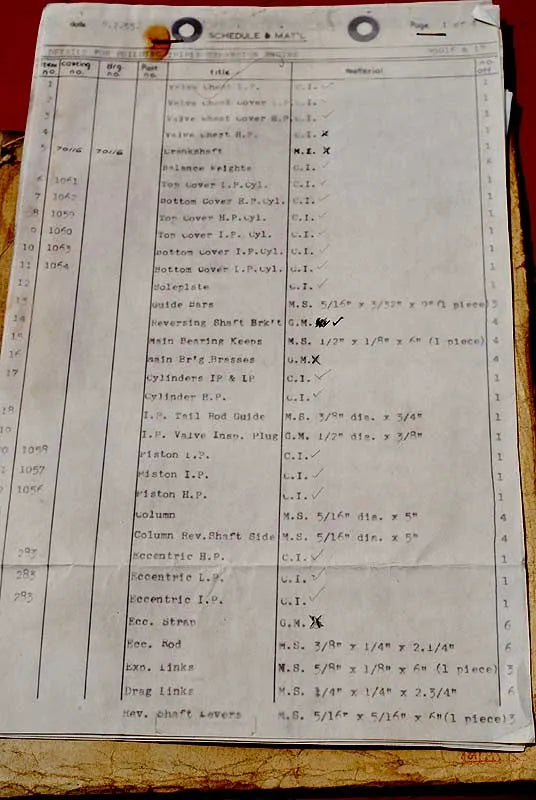 date 9.2.55. SCHEDULE & MAT'L Page 1 of
DETAILS FOR TRIPLE EXPANSION ENGINE
Item no. casting no. drg. no. Part no. title material no. off
1 Valve Chest L.P. C.I. ✓ 1
2 Valve Chest Cover L.P. C.I. ✓ 1
3 Valve Chest Cover H.P. C.I. ✓ 1
4 Valve Chest H.P. C.I. x 1
5 70116 70116 Crankshaft M.I. X 1
Balance Weights C.I. ✓ 6
6 1061 Top Cover L.P.Cyl. C.I. ✓ 1
7 1062 Bottom Cover H.P.Cyl. C.I. ✓ 1
8 1059 Top Cover H.P.Cyl. C.I. ✓ 1
9 1060 Top Cover I.P. Cyl. C.I. ✓ 1
10 1063 Bottom Cover I.P.Cyl. C.I. ✓ 1
11 1064 Bottom Cover L.P.Cyl. C.I. ✓ 1
12 Soleplate C.I. ✓ 1
13 Guide Bars M.S. 5/16" x 3/32" x 9"(1 piece) 3
14 Reversing Shaft Brk't G.M. ✓ 4
15 Main Bearing Keeps M.S. 1/2" x 1/8" x 6" (1 piece) 4
16 Main Br'g Brasses G.M. X 4
17 Cylinders IP & LP C.I. ✓ 1
Cylinder H.P. C.I. ✓ 1
18 I.P. Tail Rod Guide M.S. 3/8" dia. x 3/4" 1
I.P. Valve Insp. Plug G.M. 1/2" dia. x 3/8" 1
1058 Piston L.P. C.I. ✓ 1
1057 Piston I.P. C.I. ✓ 1
1056 Piston H.P. C.I. ✓ 1
Column M.S. 5/16" dia. x 5" 4
Column Rev.Shaft Side M.S. 5/16" dia. x 5" 4
283 Eccentric H.P. C.I. ✓ 1
283 Eccentric L.P. C.I. ✓ 1
283 Eccentric I.P. C.I. ✓ 1
Ecc. Strap G.M. X 6
Ecc. Rod M.S. 3/8" x 1/4" x 2.1/4" 6
Exp. Links M.S. 5/8" x 1/8" x 6" (1 piece) 3
Drag Links M.S. 1/4" x 1/4" x 2.3/4" 6
Rev. Shaft Levers M.S. 5/16" x 5/16" x 6"(1 piece) 3